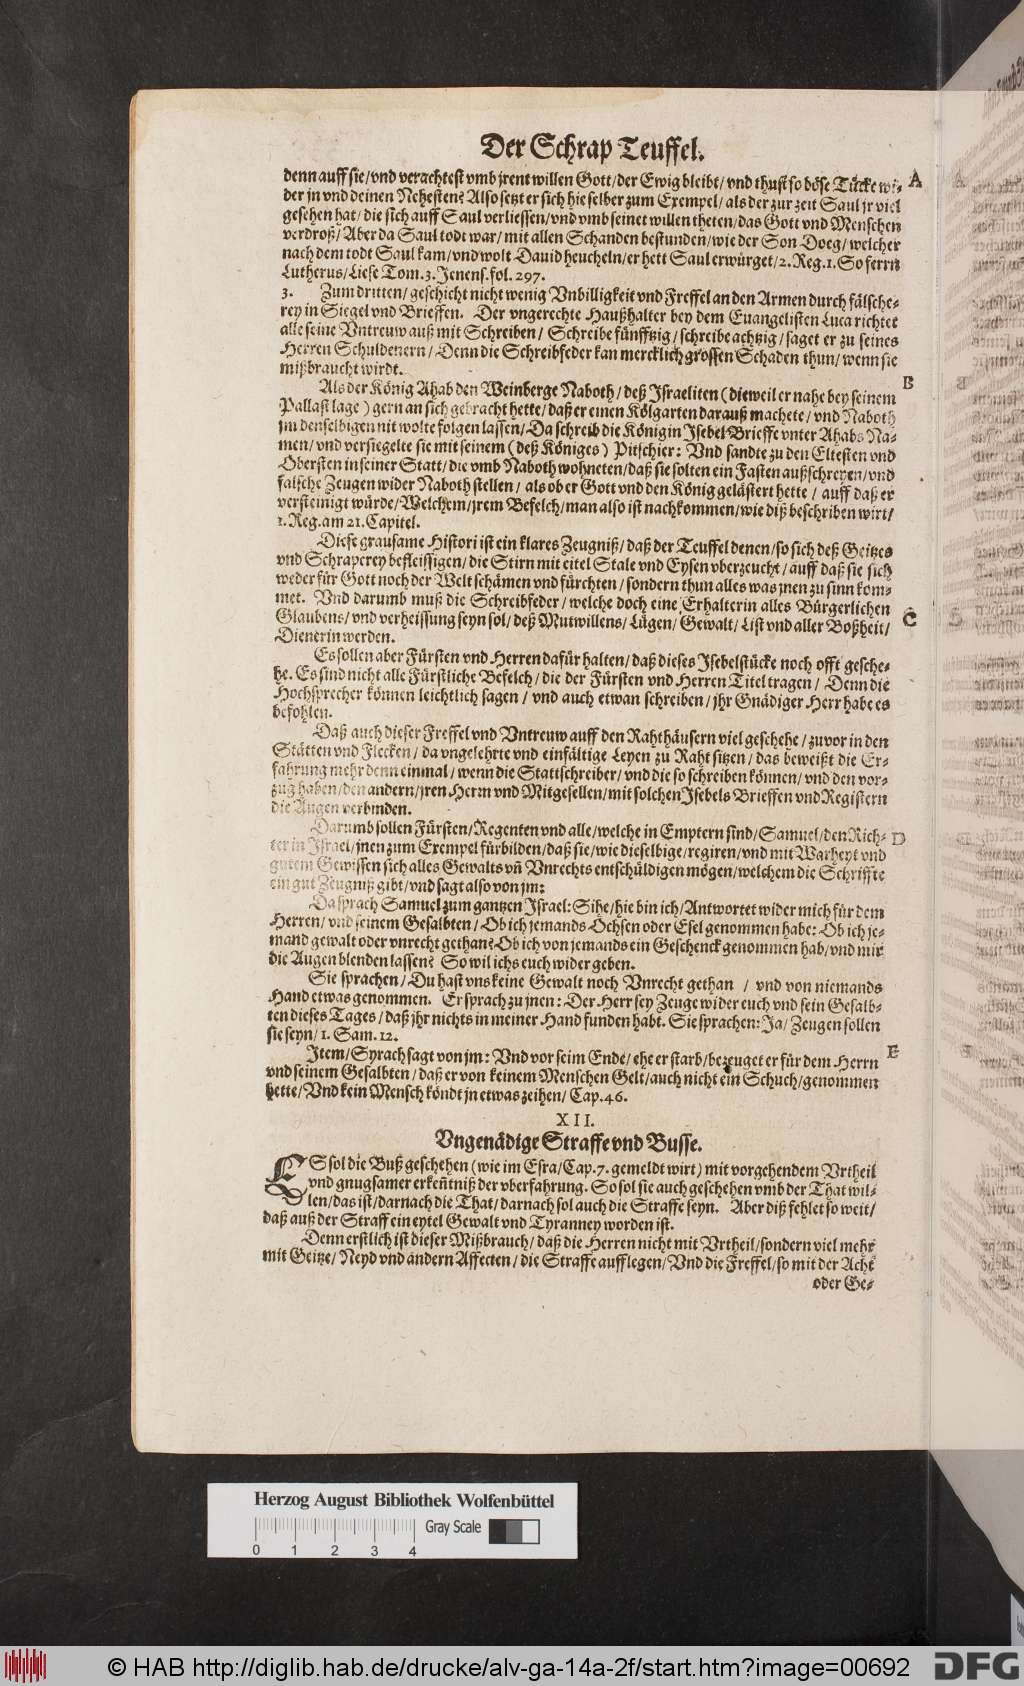 Der Schrap Teuffel.
denn auff sie/vnd verachtest vmb jrent willen Gott/der Ewig bleibt/vnd thust so böse Tücke wi- A
der jn vnd deinen Nehesten? Also setzt er sich hie selber zum Exempel/als der zur zeit Saul jr viel
gesehen hat/die sich auff Saul verliessen/vnd vmb seinet willen theten/das Gott vnd Menschen
verdroß/Aber da Saul todt war/mit allen Schanden bestunden/wie der Son Doeg/welcher
nach dem todt Saul kam/vnd wolt Dauid heucheln/er hett Saul erwürget/2. Reg.1. So ferrn
Lutherus/Liese Tom.3. Jenens. fol. 297.
3. Zum dritten/geschicht nicht wenig Vnbilligkeit vnd Freffel an den Armen durch fälsche-
rey in Siegel vnd Brieffen. Der vngerechte Haußhalter bey dem Euangelisten Luca richtet
alle seine Vntreuw auß mit Schreiben/Schreibe fünfftzig/schreibe achtzig/saget er zu seines
Herren Schuldenern/Denn die Schreibfeder kan mercklich grossen Schaden thun/wenn sie
mißbraucht wirdt. B
Als der König Ahab den Weinberge Naboth/deß Israeliten (dieweil er nahe bey seinem
Pallast lage) gern an sich gebracht hette/daß er einen Kölgarten darauß machete/vnd Naboth
jm denselbigen nit wolte folgen lassen/Da schreib die Königin Isebel Brieffe vnter Ahabs Na-
men/vnd versiegelte sie mit seinem (deß Königes) Pitschier: Vnd sandte zu den Eltesten vnd
Obersten in seiner Statt/die vmb Naboth wohneten/daß sie solten ein Fasten außschreyen/vnd
falsche Zeugen wider Naboth stellen/als ob er Gott vnd den König gelästert hette/auff daß er
versteinigt würde/Welchem/jrem Befelch/man also ist nachkommen/wie diß beschriben wirt/
1. Reg. am 21. Capitel.
Diese grausame Histori ist ein klares Zeugniß/daß der Teuffel denen/so sich deß Geitzes
vnd Schraperey befleissigen/die Stirn mit eitel Stale vnd Eysen vberzeucht/auff daß sie sich
weder für Gott noch der Welt schämen vnd fürchten/sondern thun alles was jnen zu sinn kom-
met. Vnd darumb muß die Schreibfeder/welche doch eine Erhalterin alles Bürgerlichen
Glaubens/vnd verheissung seyn sol/deß Mutwillens/Lügen/Gewalt/List vnd aller Boßheit/ C
Dienerin werden.
Es sollen aber Fürsten vnd Herren dafür halten/daß dieses Isebelstücke noch offt gesche-
he. Es sind nicht alle Fürstliche Befelch/die der Fürsten vnd Herren Titel tragen/Denn die
Hochsprecher können leichtlich sagen/vnd auch etwan schreiben/jhr Gnädiger Herr habe es
befohlen.
Daß auch dieser Freffel vnd Vntreuw auff den Rahthäusern viel geschehe/zuvor in den
Stätten vnd Flecken/da vngelehrte vnd einfältige Leyen zu Raht sitzen/das beweißt die Er-
fahrung mehr denn einmal/wenn die Stattschreiber/vnd die so schreiben können/vnd den vor-
zug haben/den andern/jren Herrn vnd Mitgesellen/mit solchen Isebels Brieffen vnd Registern
die Augen verbinden.
Darumb sollen Fürsten/Regenten vnd alle/welche in Emptern sind/Samuel/den Rich- D
ter in Israel/jnen zum Exempel fürbilden/daß sie/wie dieselbige/regiren/vnd mit Warheyt vnd
gutem Gewissen sich alles Gewalts vn̄ Vnrechts entschüldigen mögen/welchem die Schriffte
ein gut Zeugniß gibt/vnd sagt also von jm:
Da sprach Samuel zum gantzen Israel: Sihe/hie bin ich/Antwortet wider mich für dem
Herren/vnd seinem Gesalbten/Ob ich jemands Ochsen oder Esel genommen habe: Ob ich je-
mand gewalt oder vnrecht gethan? Ob ich von jemands ein Geschenck genommen hab/vnd mir
die Augen blenden lassen? So wil ichs euch wider geben.
Sie sprachen/Du hast vns keine Gewalt noch Vnrecht gethan/vnd von niemands
Hand etwas genommen. Er sprach zu jnen: Der Herr sey Zeuge wider euch vnd sein Gesalb-
ten dieses Tages/daß jhr nichts in meiner Hand funden habt. Sie sprachen: Ja/Zeugen sollen
sie seyn/1. Sam. 12.
Item/Syrach sagt von jm: Vnd vor seim Ende/ehe er starb/bezeuget er für dem Herrn E
vnd seinem Gesalbten/daß er von keinem Menschen Gelt/auch nicht ein Schuch/genommen
hette/Vnd kein Mensch köndt jn etwas zeihen/Cap.46.
XII.
Vngenädige Straffe vnd Busse.
ES sol die Buß geschehen (wie im Esra/Cap.7. gemeldt wirt) mit vorgehendem Vrtheil
vnd gnugsamer erken̄tniß der vberfahrung. So sol sie auch geschehen vmb der That wil-
len/das ist/darnach die That/darnach sol auch die Straffe seyn. Aber diß fehlet so weit/
daß auß der Straff ein eytel Gewalt vnd Tyranney worden ist.
Denn erstlich ist dieser Mißbrauch/daß die Herren nicht mit Vrtheil/sondern viel mehr
mit Geitze/Neyd vnd andern Affecten/die Straffe aufflegen/Vnd die Freffel/so mit der Acht
oder Ge-
Herzog August Bibliothek Wolfenbüttel
Gray Scale
0 1 2 3 4
© HAB http://diglib.hab.de/drucke/alv-ga-14a-2f/start.htm?image=00692
DFG